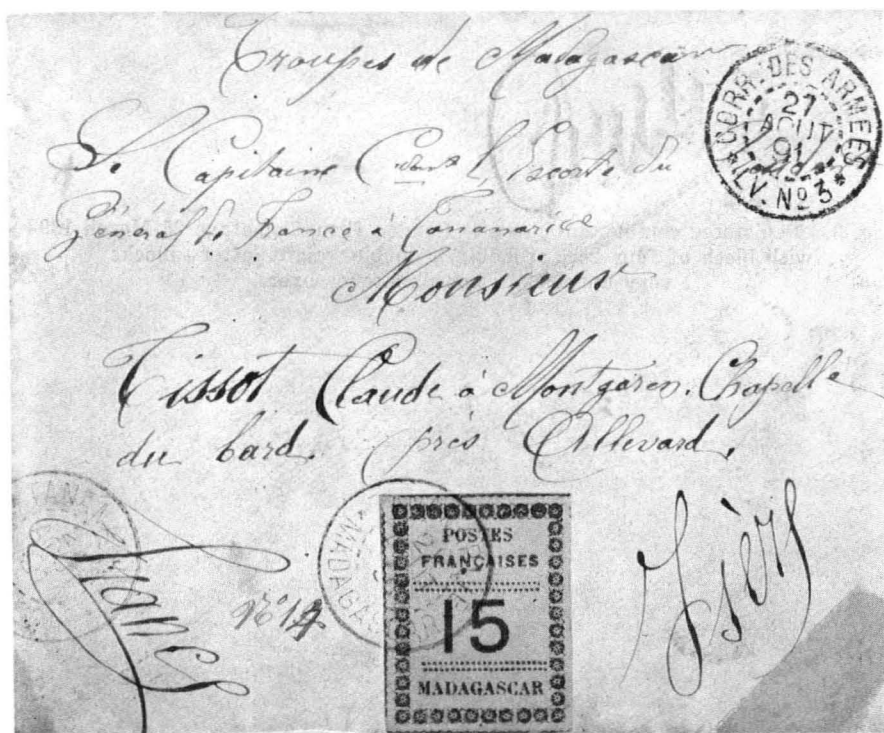 Troupes de Madagascar
CORR. DES ARMÉES
27
AOUT
91
LV. Nº 3
Le Capitaine Cdant l'Escorte du
Général de France à Tananarive
Monsieur
Tissot Claude à Montgaren. Chapelle
du bard. près Allevard.
Isère
France
Nº 14
MADAGASCAR
POSTES
FRANÇAISES
15
MADAGASCAR